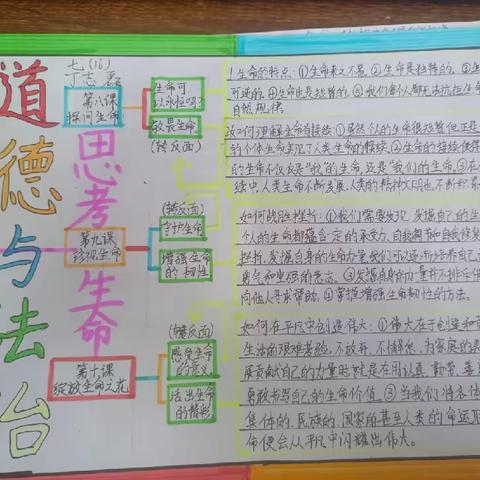 道德与法治
七(16)
丁志磊
思考生命
第八课
探问生命
生命可
以永恒吗?
敬畏生命
(转反面)
第九课
珍视生命
(转反面)
守护生命
增强生命
的韧性
第十课
绽放生命之花
(转反面)
感受生命
的意义
活出生命
的精彩
1.生命的特点:①生命来之不易.②生命是独特的.③生
可逆的.④生命也是短暂的.⑤我们每个人都无法抗拒生命
自然规律
②如何理解生命有接续:①虽然个人的生命很短暂但正是
的个体生命实现了人类生命的接续.②生命的接续使得
的生命不仅仅是"我"的生命,还是"我们"的生命.③在
续中,人类生命不断发展,人类的精神文明也不断积累
如何战胜挫折:①我们需要发现,发掘自己的生
个人的生命都蕴含一定的承受力,自我调节和自我修复
挫折,发掘自身的生命力量我们可以逐渐培养自己
勇气和坚强的意志.③发掘自身的力量并不排斥借
向他人寻求帮助.④掌握增强生命韧性的方法.
如何在平凡中创造伟大:①伟大在于创造和
生活的艰难考验,不放弃,不懈怠,为家庭的
展贡献自己的力量时,就是在用认真,勤劳,善
勇敢书写自己的生命价值.③当我们将个体
集体的,民族的,国家的甚至人类的命运联
命便会从平凡中闪耀出伟大。